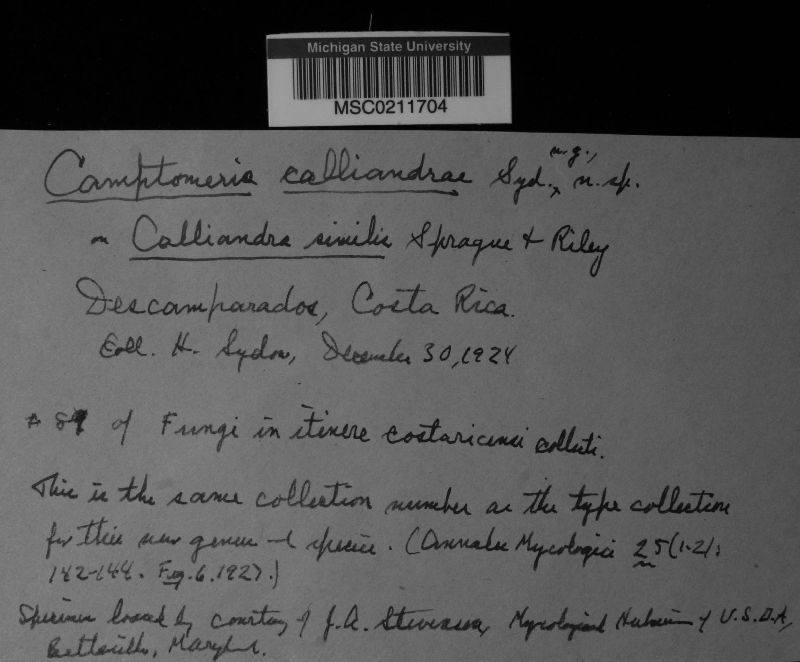 Michigan State University
MSC0211704
n.g.,
Camptomeris calliandrae Syd., n. sp.
on Calliandra similis Sprague & Riley
Descamparados, Costa Rica.
Coll. H. Sydow, December 30, 1924
# 89 of Fungi in itinere costaricensi collecti.
This is the same collection number as the type collection
for this new genus and species. (Annales Mycologici 25(1-2):
142-144. Fig. 6. 1927.)
Specimen loaned by courtesy of J.A. Stevenson, Mycological Herbarium of U.S.D.A,
Beltsville, Maryland.